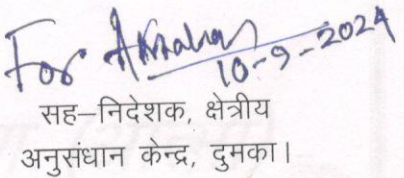 For
10-9-2024
सह–निदेशक, क्षेत्रीय
अनुसंधान केन्द्र, दुमका।